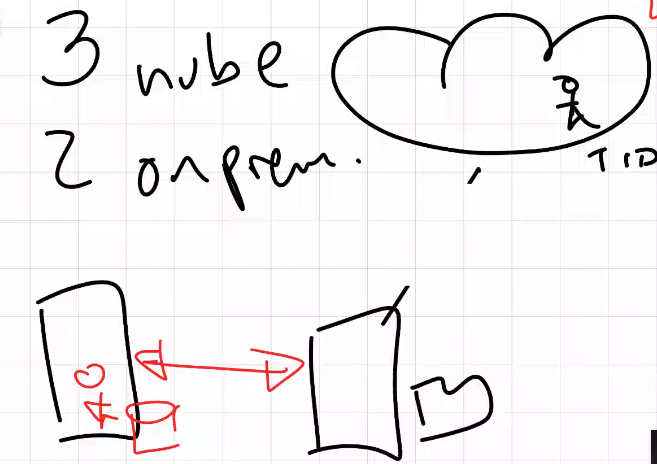 3 nube
2 onprem.
TID